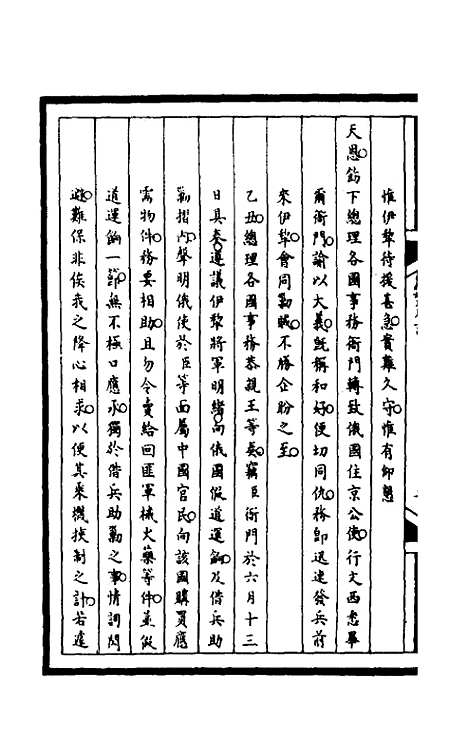 惟伊犂待援甚急實難久守惟有仰懇
天恩飭下總理各國事務衙門轉致俄國住京公使行文西悉畢
爾衙門諭以大義旣稱和好便切同仇務卽迅速發兵前
來伊犂會同勦賊不勝企盼之至
乙丑總理各國事務恭親王等奏竊臣衙門於六月十三
日具奏遵議伊犂將軍明緒向俄國假道運餉及借兵助
勦摺內聲明俄使於臣等面屬中國官民向該國購買應
需物件務要相助且勿令賣給回匪軍械火藥等件並假
道運餉一節無不極口應承獨於借兵助勦之事情詞閃
避難保非俟我之降心相求以便其乘機挾制之計若遽